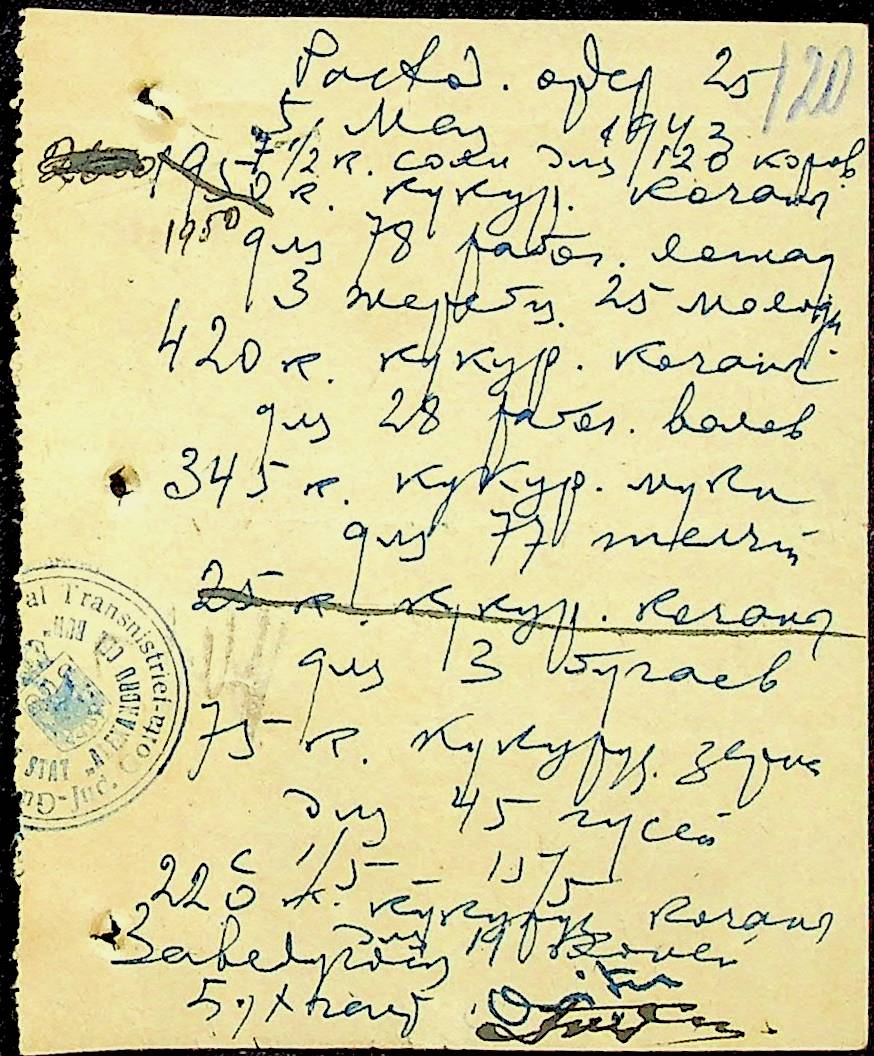 Расход. ордер 25
120
5/ Мая 1943
7 1/2 к. соли для 120 коров
1950 к. кукур. кочан
1950
для 78 рабоч. лошад
3 жеребц. 25 молод
420 к. кукур. кочан
для 28 рабоч. волов
345 к. кукур. муки
для 77 телят
25 к. кукур. кочан
для 3 бугаев
75 к. кукуруз. зерна
для 45 гусей
с 1/5 15/5
226 к. кукуруз кочан
для 19 коней
Заведующ
al Transnistriei-
Jud. Golta
STAT